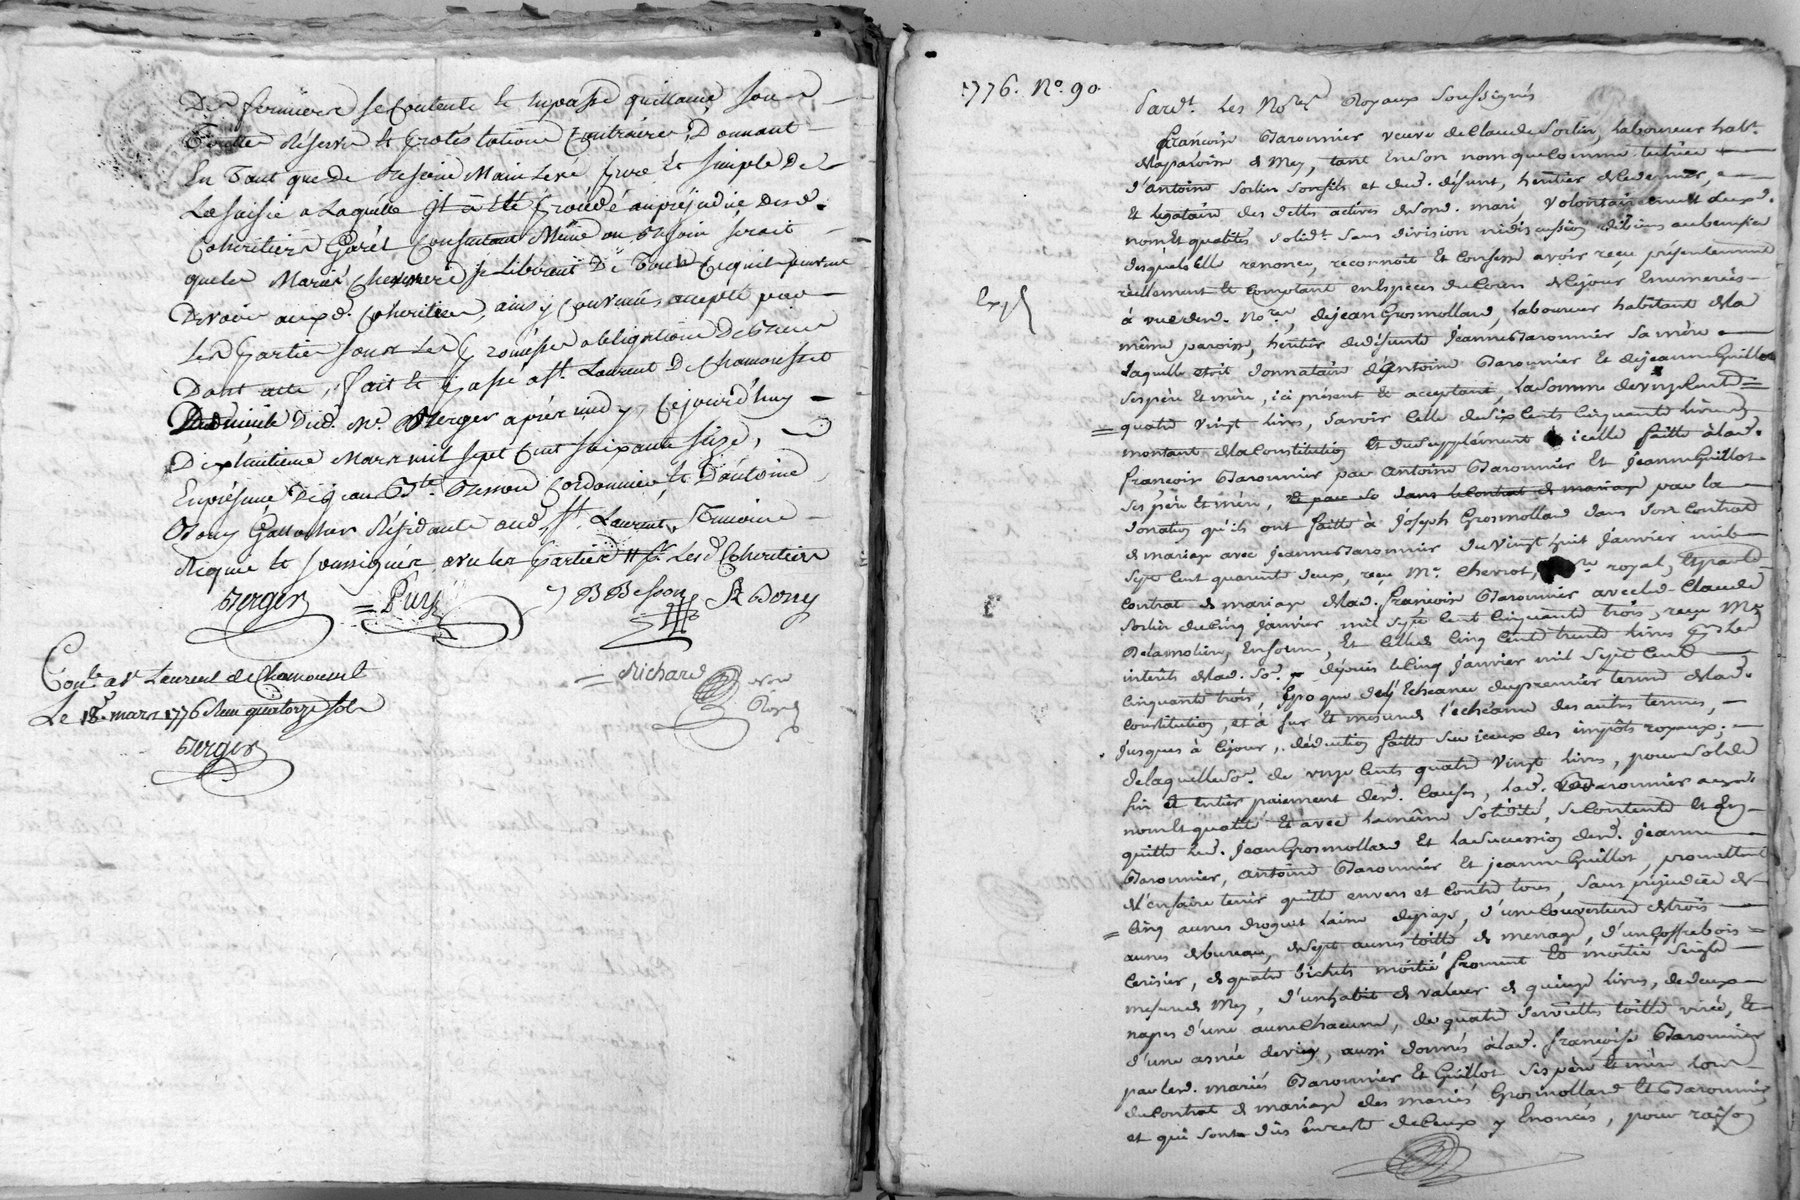 Dernieres se Contente
Toutte Réserve et Protestation Contraire, Donnant
En Tant que de Besoin Main Levé pure et simple De
La saisie a Laquelle il a été procédé au préjudice Desd.
Cohéritiers Garèt Consentant Même au Besoin
que les Mariés se Libèrent De Tout Ce qui peuvent
Devoir auxd. Cohéritiers, ainsy Convenu accepté par
Les Parties sous Les Promesse obligation
Dont acte, fait et Passé a St. Laurent De Chamousset
Domicile Dud. Me. Berger après midy Cejourd'huy
Dixhuitieme Mars mil sept Cent soixante seize,
En présence De Jean Bte. Besson Cordonnier et D'antoine
Bony Résidants aud. St. Laurent, Témoins
Requis et soussignés avec les parties Lesd. Cohéritiers
Berger = Puy J B Besson A Bony
= Richard
Conlé. a St Laurent de Chamousset
Le 18. mars 1776 Reçu quatorze sols
Berger
1776. No. 90
Pardt. Les Nores. Royaux Soussignés
françoise Baronnier veuve de Claude Sorlin, laboureur habt.
de la paroisse de Mey, tant en son nom que comme tutrice
d'antoine Sorlin son fils et dud. défunt, héritier de ce dernier,
et légataire des dettes actives de sond. mari volontairement auxd.
nom et qualités solidt. sans division ni discussion, au benefice
desquels elle renonce, reconnoit et confesse avoir reçu présentement
réellement et comptant en espèces du cours de ce jour énumérées
à vue desd. Nores., de jean Grosmolland, laboureur habitant de la
même paroisse, héritier de défunte jeanne Baronnier sa mère
laquelle etoit donnataire d'antoine Baronnier et de jeanne Guillot
ses père et mère, ici présent et acceptant, la somme de onze cent
quatre vingt livres, savoir celle de six cents cinquante livres,
montant de la constitution et du supplément icelle faitte à lad.
françoise Baronnier par antoine Baronnier et jeanne Guillot
ses père et mère, par la
donation qu'ils ont faitte à joseph Grosmolland dans son contrat
de mariage avec jeanne Baronnier du vingt huit janvier mil
sept cent quarante deux, reçu Me. Cheriot, royal, et par le
contrat de mariage de lad. françoise Baronnier avec led. Claude
Sorlin du cinq janvier mil sept cent cinquante trois, reçu Me.
Delamolin, en forme, et celle de cinq cents trente livres
intérêts de lad. so. depuis le cinq janvier mil sept cent
cinquante trois, époque de l'échéance du premier terme de lad.
constitution, et à fur et mesure l'échéance des autres termes,
jusques à ce jour, déduction faitte sur iceux des impôts royaux;
de laquelle so. de onze cents quatre vingt livres, pour solde
fin et entier paiement desd. causes, lad. Baronnier auxd.
nom et qualité et avec la même solidité, se contente et en
quitte led. jean Grosmolland et la succession desd. jeanne
Baronnier, antoine Baronnier et jeanne Guillot, promettant
de l'en faire tenir quitte envers et contre tous, sans préjudice de
cinq aunes droguet laine, d'une couverture de trois
aunes de bureau, de sept aunes toille de menage, d'un coffre bois
cerisier, de quatre bichets moitié froment et moitié seigle
mesure de Mey, d'un habit de valeur de quinze livres, de deux
napes d'une aune chacune, de quatre serviettes toille, et
d'une asnée de vin, aussi donnés à lad. françoise Baronnier
par lesd. mariés Baronnier et Guillot ses père et mère lors
du contrat de mariage des mariés Grosmolland et Baronnier
et qui sont dûs en reste de ceux y énoncés, pour raison